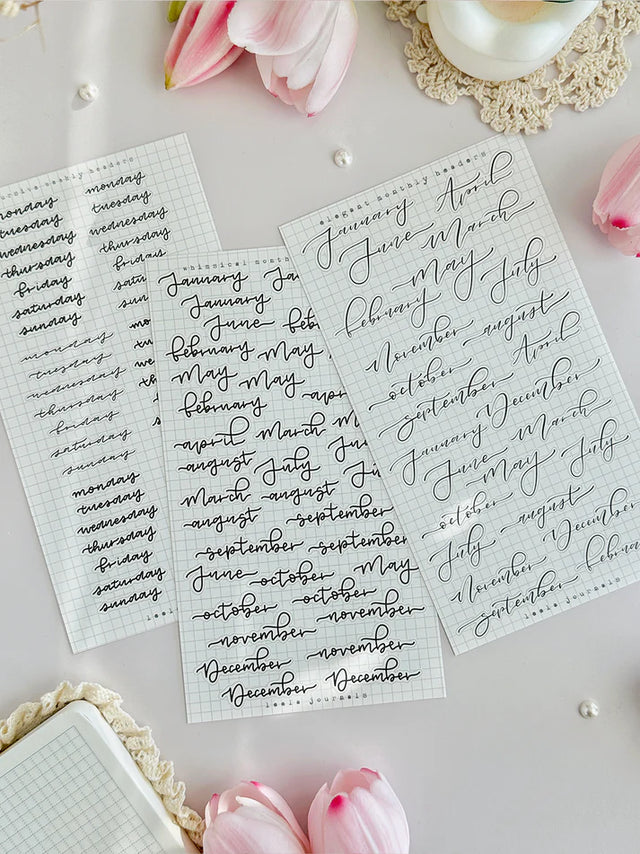 weekly headers
monday
monday
tuesday
tuesday
wednesday
wednesday
thursday
thursday
friday
friday
saturday
sunday
monday
tuesday
wednesday
thursday
friday
saturday
sunday
monday
tuesday
wednesday
thursday
friday
saturday
sunday
whimsical
January
January
June
february
May May
May May
february
april March
august July
March august
august september
september september
June october May
october october
november november
December november
December December
leela journals
elegant monthly headers
January April
June March
May July
february
November august
october April
september
January December
June March
May July
october
July august
November December
september
leela journals